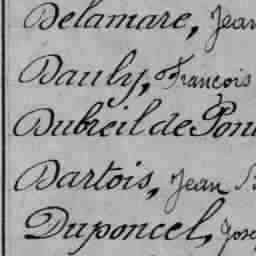 Delamare, Jean
Dauly, François
Dubreil de Pon
Dartois, Jean
Duponcel, Jose